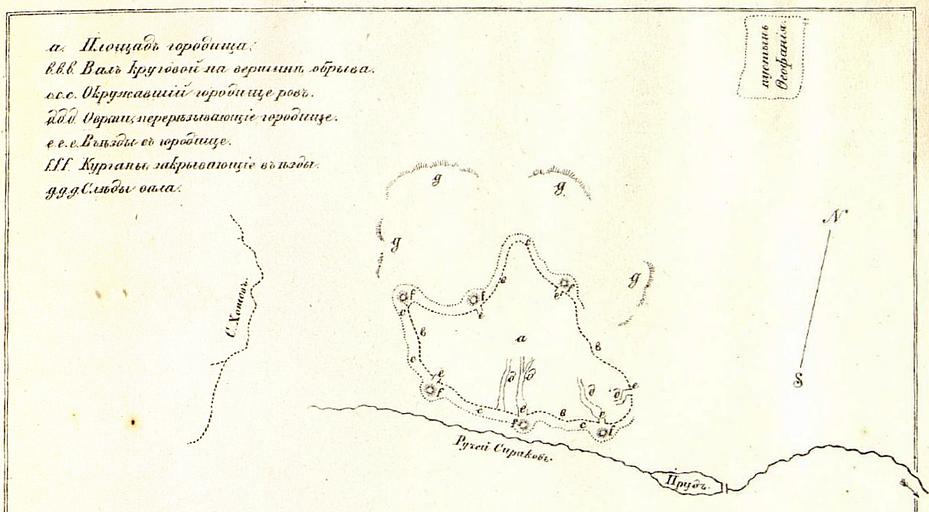 а. Площадь городища.
в.в.в. Валъ круговой на вершинѣ обрыва.
с.с.с. Окружавшій городище ровъ.
д.д.д. Овраги, перерѣзывающіе городище.
е.е.е. Въѣзды съ городище.
f.f.f. Курганы, закрывающіе въѣзды.
g.g.g. Слѣды вала.
пустынь
Ѳеофанія.
g
g
g
g
N
S
С. Хотовъ.
f
c
f
e
в
e
в
c
a
в
c
e
f
д
д
д
д
e
c
e
f
в
c
e
f
Ручей Сираковъ.
Прудъ.